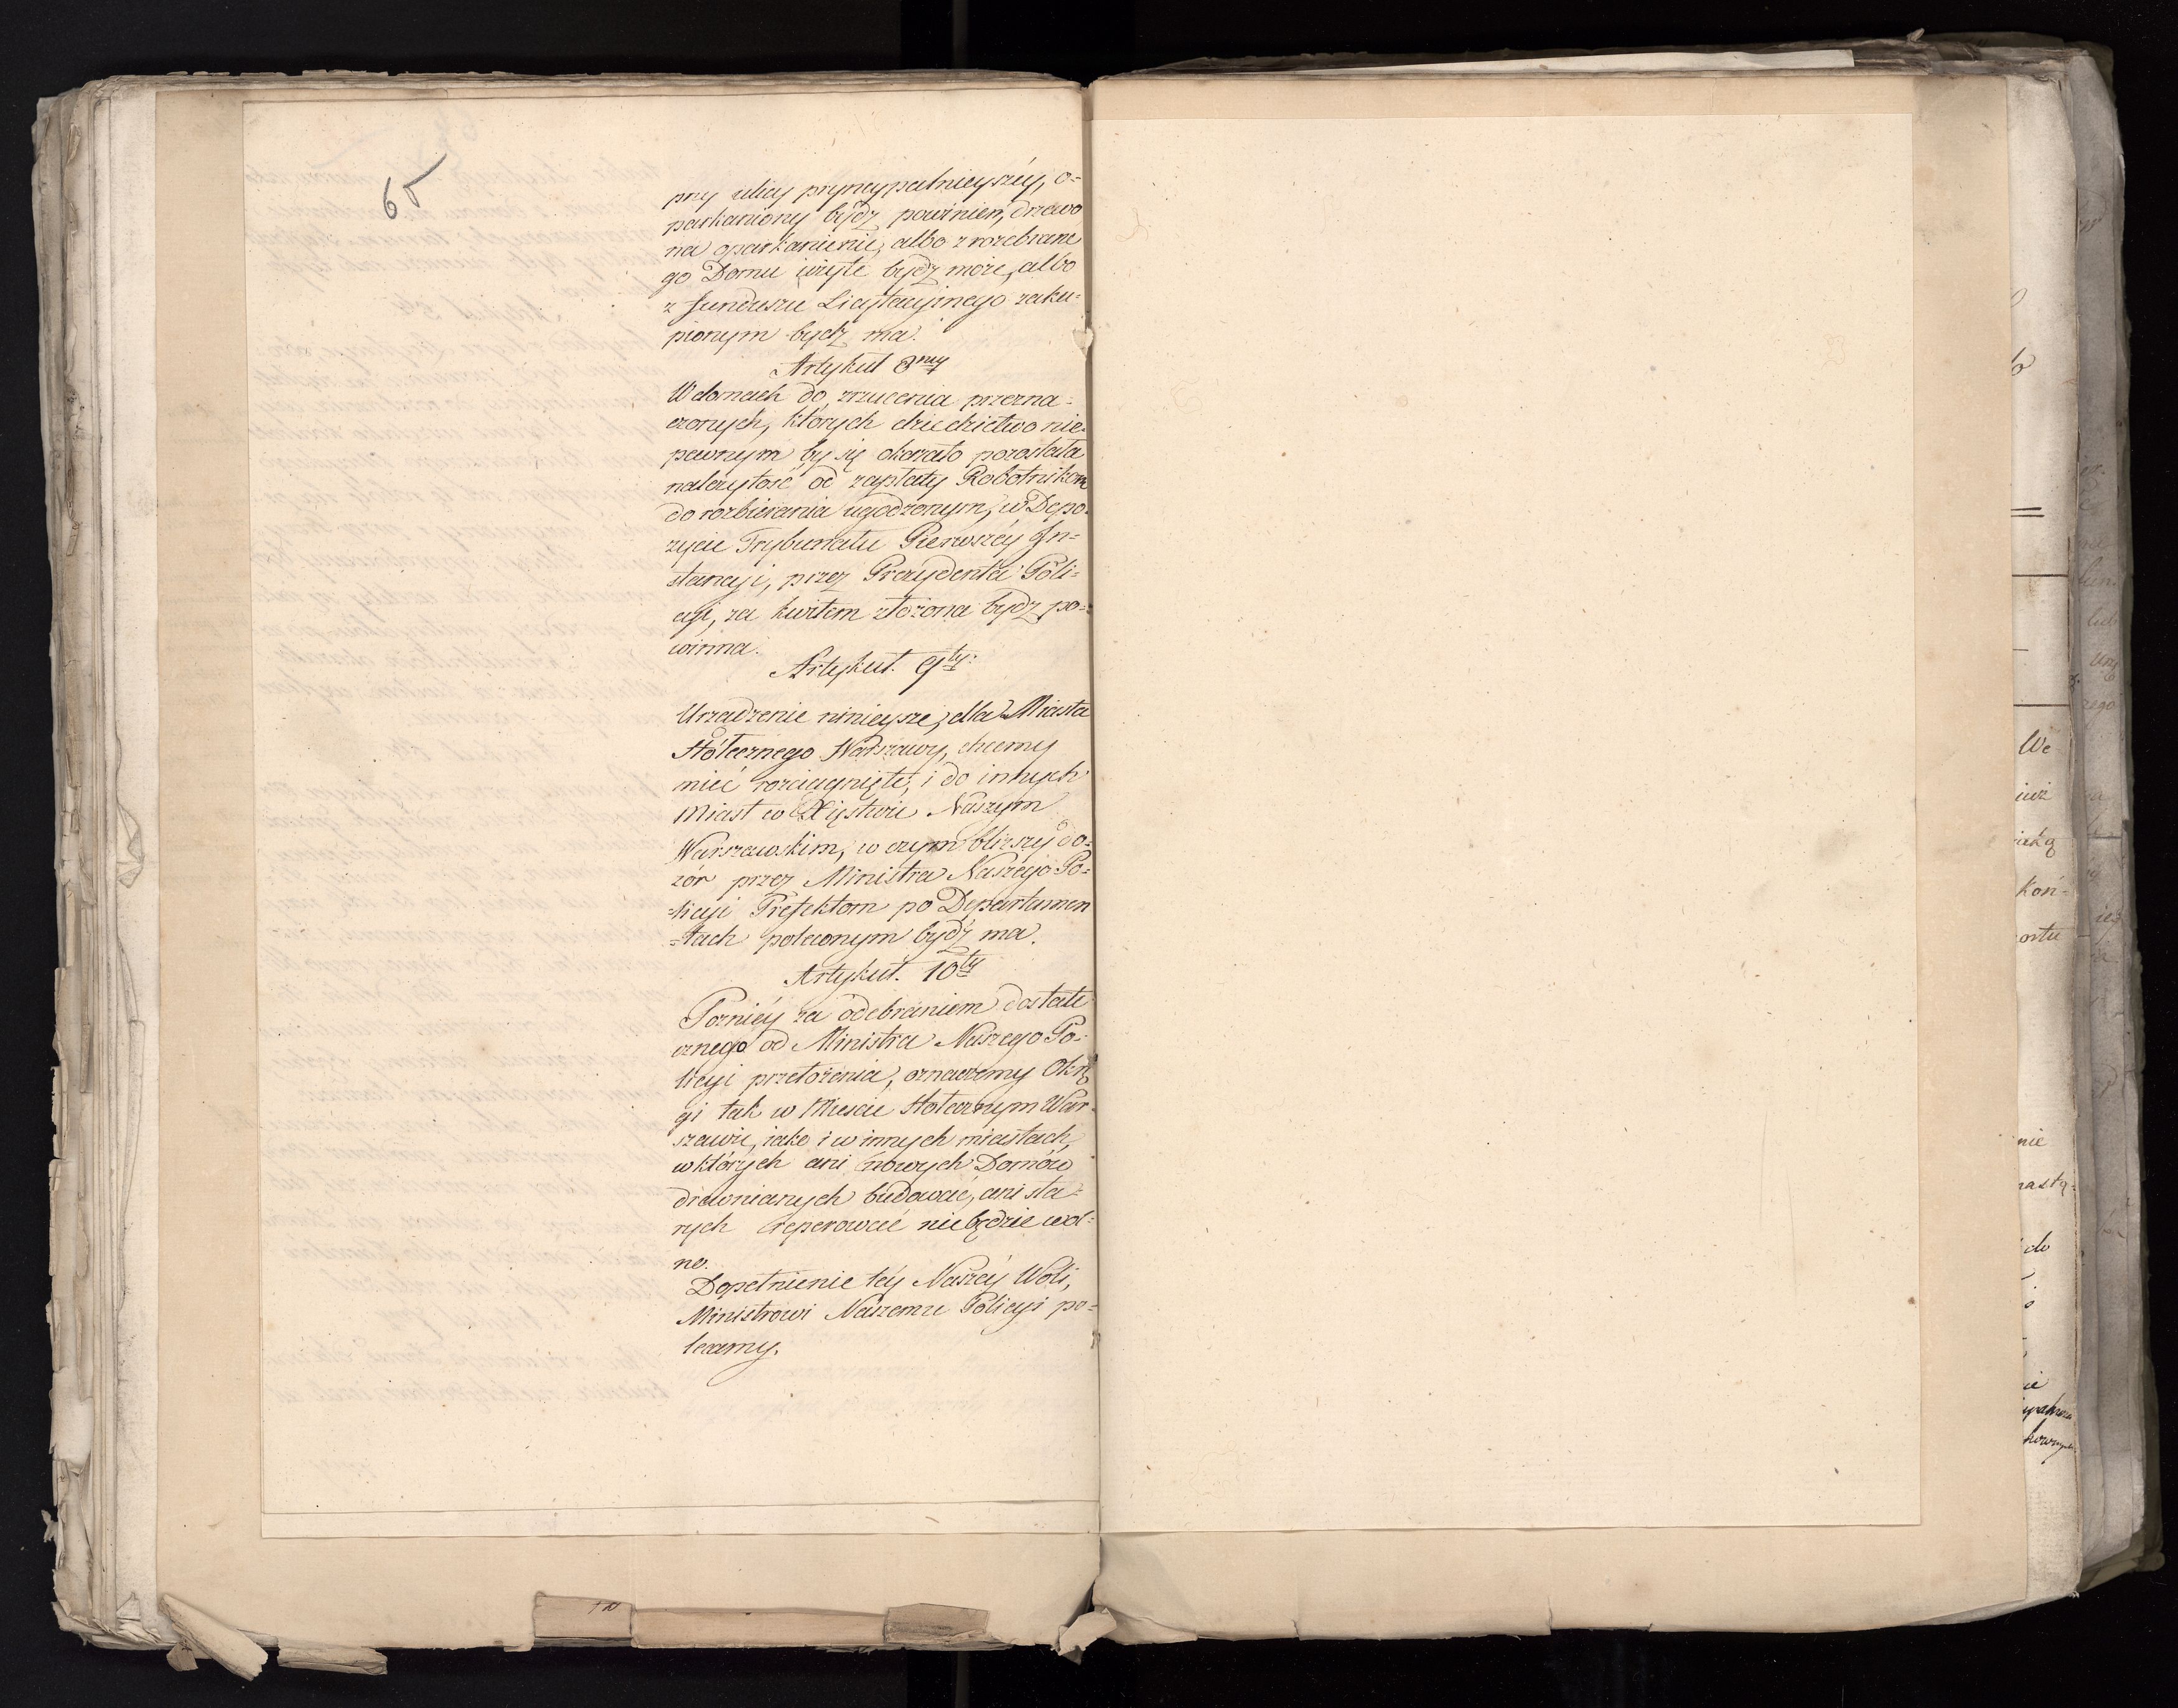 65
przy ulicy pryncypalnieyszéy, o=
parkaniony bydź powinień, drzewo
na oparkanienie, albo z rozebrane
go Domu użyte bydź może, albo
z Funduszu Licytacyinego zaku=
pionym bydź ma.
Artykuł 8my
W domach do zrzucenia przezna=
czonych, których dziedzictwo nie=
pewnym by się okazało pozostała
należytość od zapłaty Robotnikom
do rozbierania ugodzonym, w Depo=
zycie Trybunału Pierwszéy In=
stancyi, przez Prezydenta Poli=
cyi, za kwitem złożona bydz po=
winna.
Artykuł. 9ty:
Urządzenie ninieysze, dla Miasta
Stołecznego Warszawy, chcemy
mieć rozciągnięte, i do innych
Miast w Xięstwie Naszym
Warszawskim, w czym bliższy do=
zór przez Ministra Naszego Po=
=licyi Prefektom po Departamen
=tach poleconym bydź ma.
Artykuł. 10ty
Pozniéy za odebraniem dostate
cznego od Ministra Naszego Po=
licyi przełożenia, oznaczemy Okrę
gi tak w Miescie Stołecznym War=
szawie, iako i w innych miastach,
w których ani nowych Domów
drewnianych budować, ani sta=
rych reperować nie będzie wol=
no.
Dopełnienie téy Naszéy Woli,
Ministrowi Naszemu Policyi po=
lecamy.